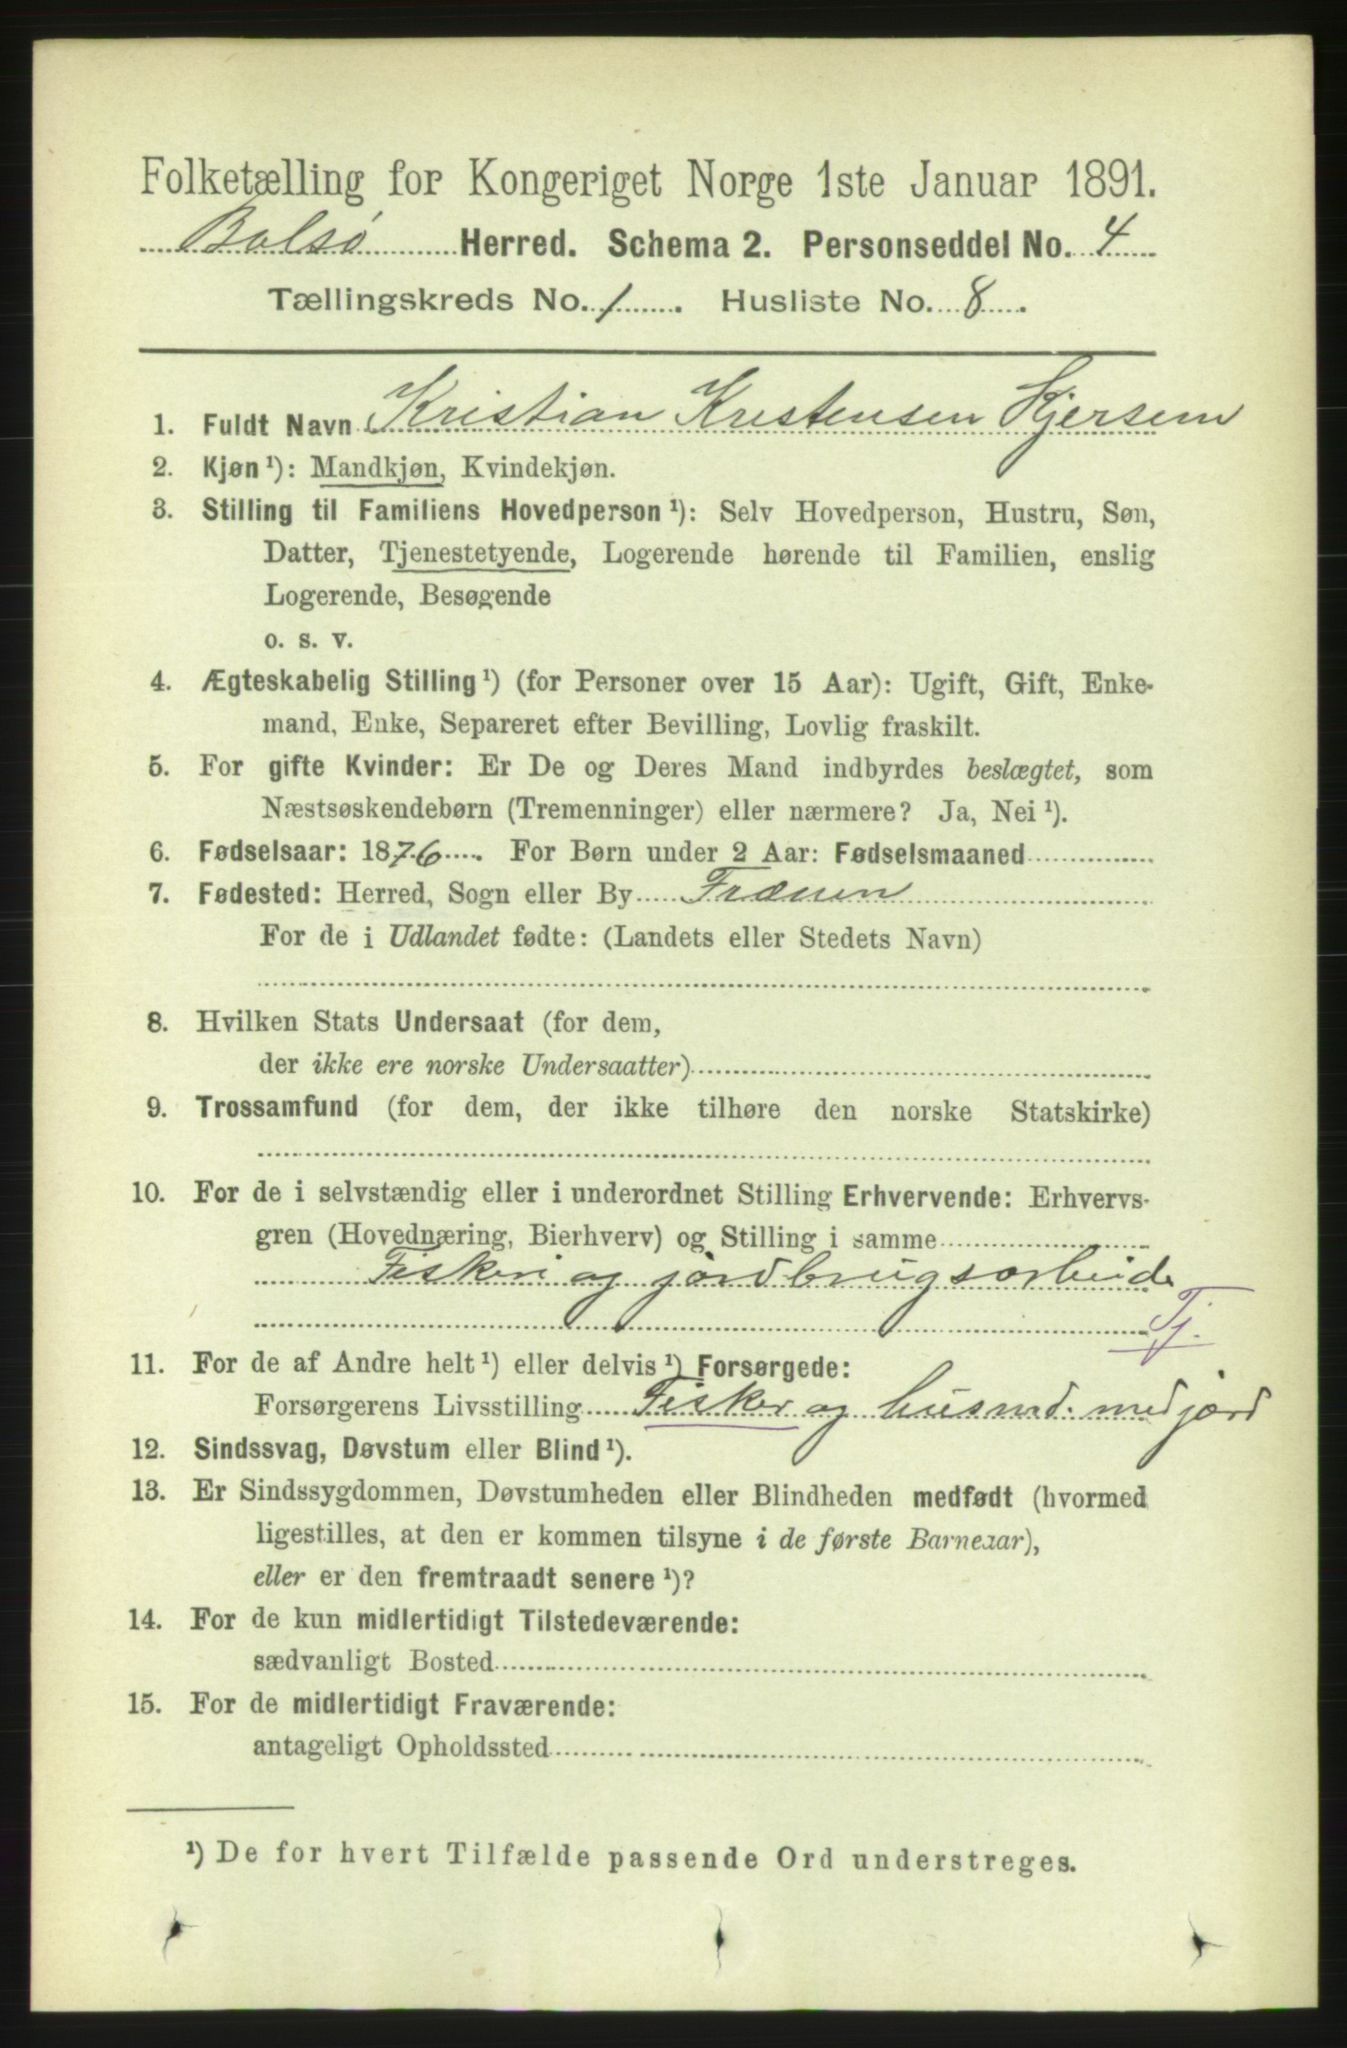 Folketælling for Kongeriget Norge 1ste Januar 1891.
Bolsø Herred. Schema 2. Personseddel No. 4
Tællingskreds No. 1. Husliste No. 8.
1. Fuldt Navn Kristian Kristensen Hjersem
2. Kjøn ¹): Mandkjøn, Kvindekjøn.
3. Stilling til Familiens Hovedperson ¹): Selv Hovedperson, Hustru, Søn,
Datter, Tjenestetyende, Logerende hørende til Familien, enslig
Logerende, Besøgende
o. s. v.
4. Ægteskabelig Stilling ¹) (for Personer over 15 Aar): Ugift, Gift, Enke-
mand, Enke, Separeret efter Bevilling, Lovlig fraskilt.
5. For gifte Kvinder: Er De og Deres Mand indbyrdes beslægtet, som
Næstsøskendebørn (Tremenninger) eller nærmere? Ja, Nei ¹).
6. Fødselsaar: 1876. For Børn under 2 Aar: Fødselsmaaned
7. Fødested: Herred, Sogn eller By Frænen
For de i Udlandet fødte: (Landets eller Stedets Navn)
8. Hvilken Stats Undersaat (for dem,
der ikke ere norske Undersaatter)
9. Trossamfund (for dem, der ikke tilhøre den norske Statskirke)
10. For de i selvstændig eller i underordnet Stilling Erhvervende: Erhvervs-
gren (Hovednæring, Bierhverv) og Stilling i samme
Fiskeri og jordbrugsarbeide
Tj.
11. For de af Andre helt ¹) eller delvis ¹) Forsørgede:
Forsørgerens Livsstilling Fisker og husmd. med jord
12. Sindssvag, Døvstum eller Blind ¹).
13. Er Sindssygdommen, Døvstumheden eller Blindheden medfødt (hvormed
ligestilles, at den er kommen tilsyne i de første Barneaar),
eller er den fremtraadt senere ¹)?
14. For de kun midlertidigt Tilstedeværende:
sædvanligt Bosted
15. For de midlertidigt Fraværende:
antageligt Opholdssted
¹) De for hvert Tilfælde passende Ord understreges.